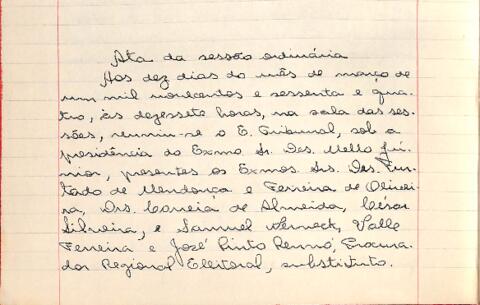 Ata da sessão ordinária
Aos dez dias do mês de março de
um mil novecentos e sessenta e qua-
tro, às dezessete horas, na sala das ses-
sões, reuniu-se o E. Tribunal, sob a
presidência do Exmo. Sr. Des. Mello Jú-
nior, presentes os Exmos. Srs. Des. Fur-
tado de Mendonça e Ferreira de Olivei-
ra, Drs. Correia de Almeida, César
Silveira, e Samuel Werneck, Valle
Ferreira e José Pinto Rennó, Procura-
dor Regional Eleitoral, substituto.